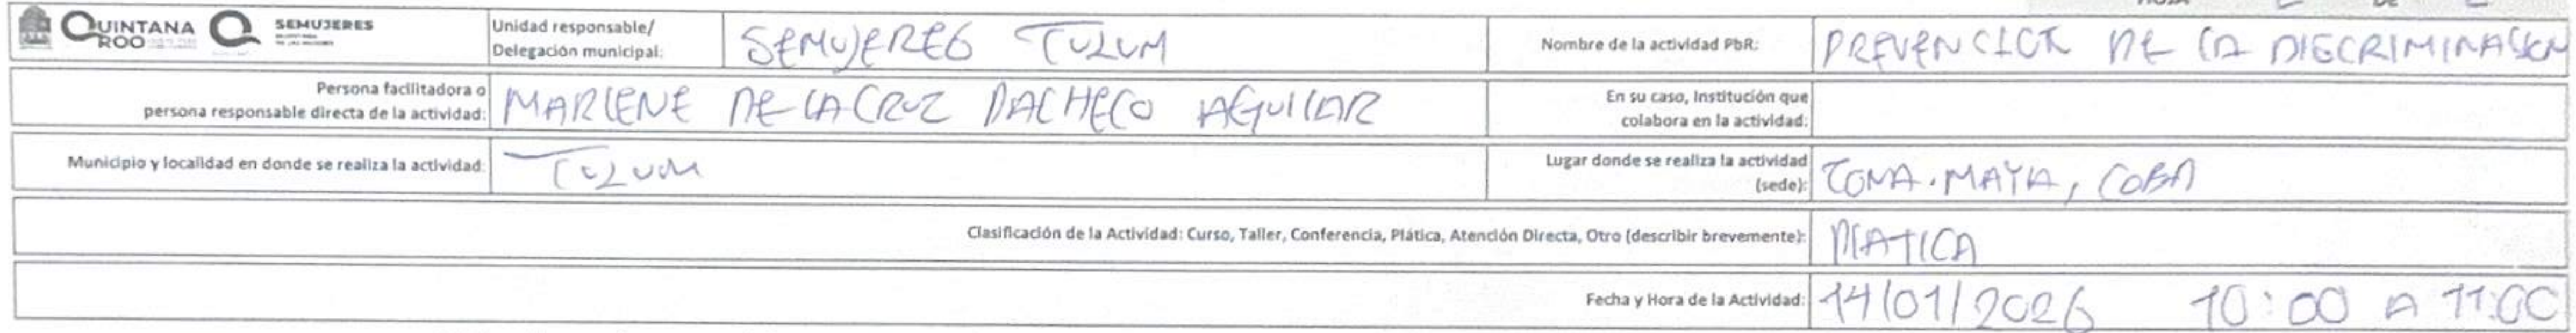 QUINTANA ROO SEMUJERES
Unidad responsable/ Delegación municipal: SEMUJERES TULUM
Nombre de la actividad PbR: PREVENCION DE LA DISCRIMINACION
Persona facilitadora o persona responsable directa de la actividad: MARLENE DE LA CRUZ PACHECO AGUILAR
En su caso, Institución que colabora en la actividad:
Municipio y localidad en donde se realiza la actividad: TULUM
Lugar donde se realiza la actividad (sede): ZONA.MAYA, COBA
Clasificación de la Actividad: Curso, Taller, Conferencia, Plática, Atención Directa, Otro (describir brevemente): PLATICA
Fecha y Hora de la Actividad: 14/01/2026 10:00 A 11:00